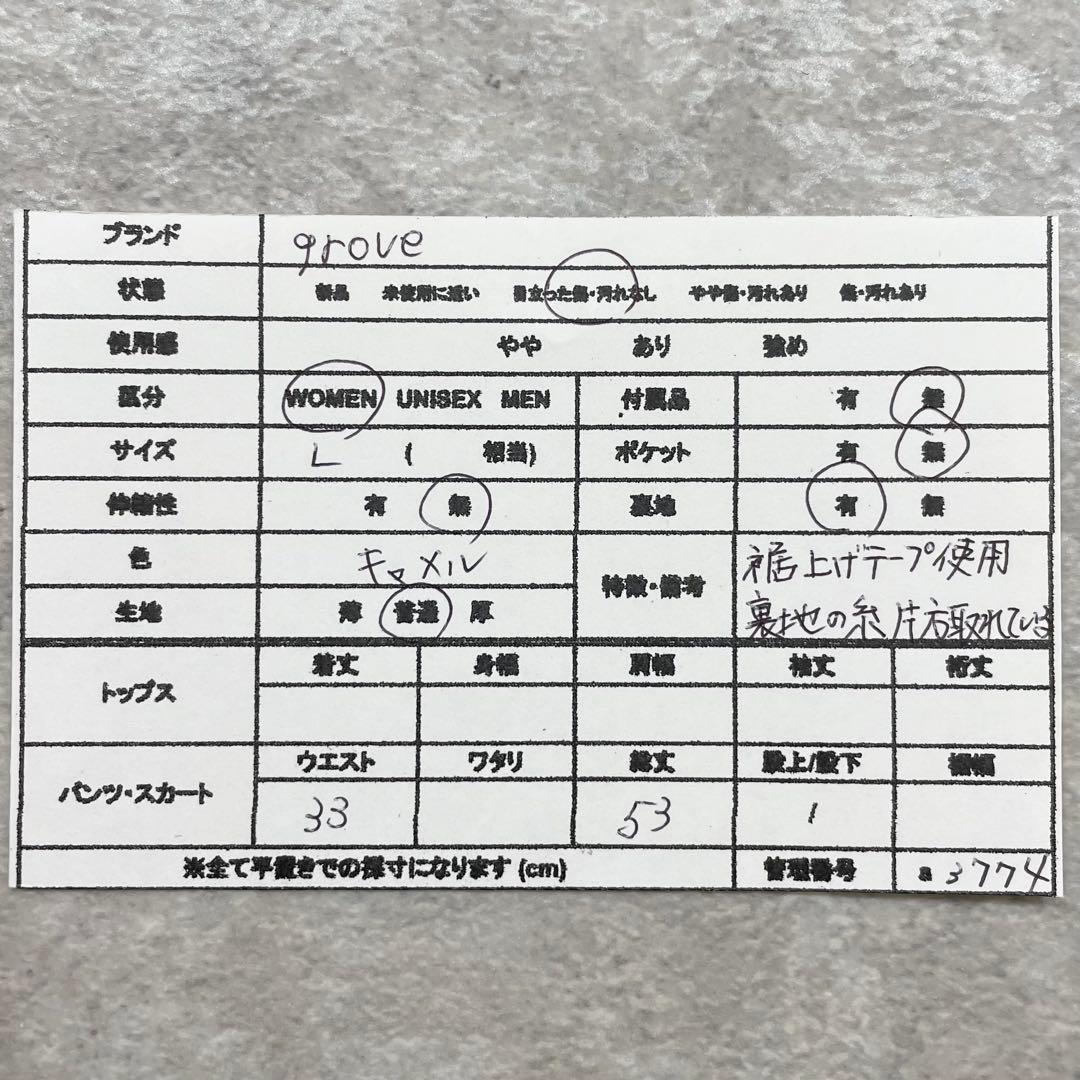 ブランド grove
状態 新品 未使用に近い 目立った傷・汚れなし やや傷・汚れあり 傷・汚れあり
使用感 やや あり 強め
区分 WOMEN UNISEX MEN 付属品 有 無
サイズ L ( 相当) ポケット 有 無
伸縮性 有 無 裏地 有 無
色 キャメル 特徴・備考 裾上げテープ使用
生地 薄 普通 厚 裏地の糸片方取れています
トップス 着丈 身幅 肩幅 袖丈 裄丈
パンツ・スカート ウエスト ワタリ 総丈 股上/股下 裾幅
33 53 /
※全て平置きでの採寸になります (cm) 管理番号 a 3774